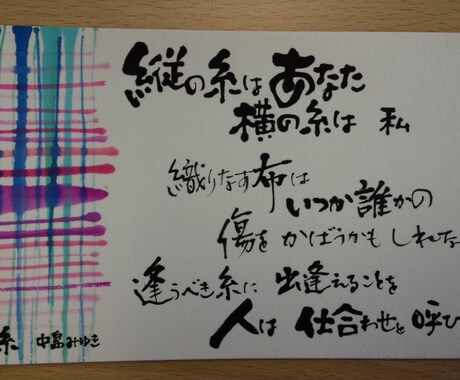 縦の糸はあなた
横の糸は 私
織りなす布は
いつか誰かの
傷を かばうかもしれな
逢うべき糸に 出逢えることを
人は 仕合わせと 呼び
糸 中島みゆき